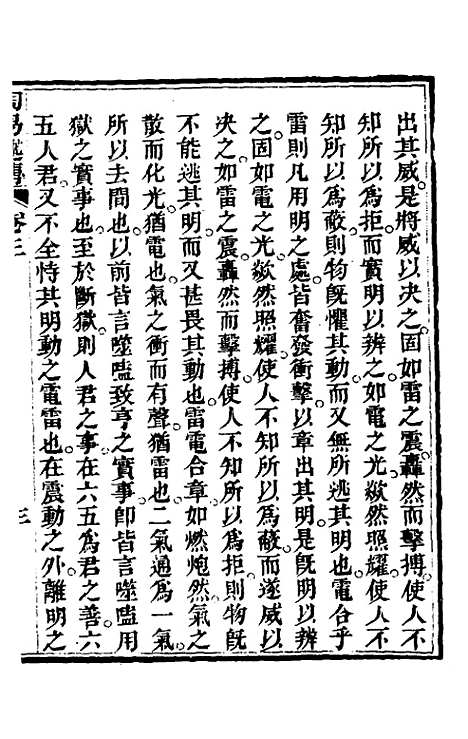 出其威是將威以決之固如雷之震轟然而擊搏使人不
知所以爲拒而實明以辨之如電之光歘然照耀使人不
知所以爲蔽則物旣懼其動而又無所逃其明也電合乎
雷則凡用明之處皆奮發衝擊以章出其明是旣明以辨
之固如電之光歘然照耀使人不知所以爲蔽而遂威以
決之如雷之震轟然而擊搏使人不知所以爲拒則物旣
不能逃其明而又甚畏其動也雷電合章如燃炮然氣之
散而化光猶電也氣之衝而有聲猶雷也二氣通爲一氣
所以去間也以前皆言噬嗑致亨之實事卽皆言噬嗑用
獄之實事也至於斷獄則人君之事在六五爲君之善六
五人君又不全恃其明動之電雷也在震動之外離明之
周易述傳
卷三
三